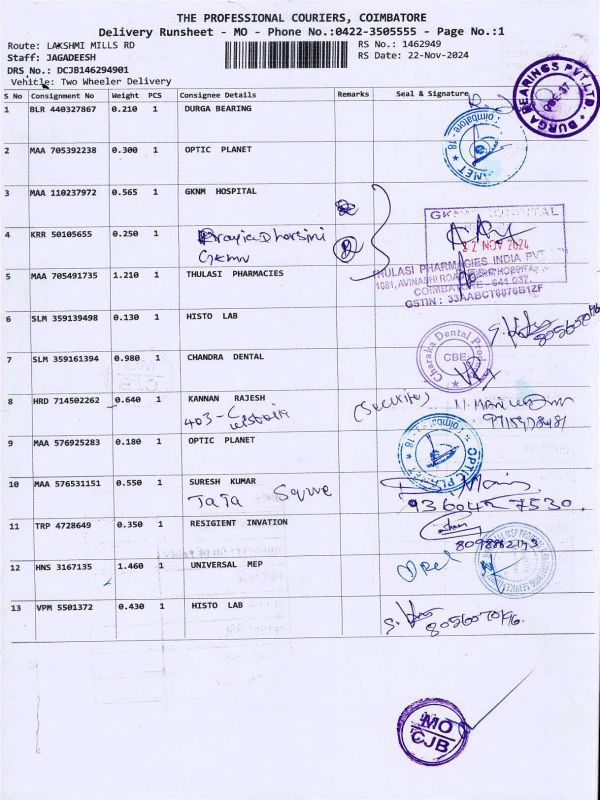 THE PROFESSIONAL COURIERS, COIMBATORE
Delivery Runsheet - MO - Phone No.:0422-3505555 - Page No.:1
Route: LAKSHMI MILLS RD RS No.: 1462949
Staff: JAGADEESH RS Date: 22-Nov-2024
DRS No.: DCJB146294901
Vehicle: Two Wheeler Delivery
S No Consignment No Weight PCS Consignee Details Remarks Seal & Signature
1 BLR 440327867 0.210 1 DURGA BEARING
DURGA BEARINGS PVT.LTD.
2 MAA 705392238 0.300 1 OPTIC PLANET
3 MAA 110237972 0.565 1 GKNM HOSPITAL
22 NOV 2024
4 KRR 50105655 0.250 1
2
THULASI PHARMACIES INDIA PVT
COIMBATORE - 641 037.
GSTIN : 33AABCT6876B1ZF
5 MAA 705491735 1.210 1 THULASI PHARMACIES
6 SLM 359139498 0.130 1 HISTO LAB
8056070196
7 SLM 359161394 0.980 1 CHANDRA DENTAL
Charaka Dental
CBE
8 HRD 714502262 0.640 1 KANNAN RAJESH
403-
9 MAA 576925283 0.180 1 OPTIC PLANET
OPTIC PLANET
10 MAA 576531151 0.550 1 SURESH KUMAR
TaTa Squre
11 TRP 4728649 0.350 1 RESIGIENT INVATION
12 HNS 3167135 1.460 1 UNIVERSAL MEP
13 VPM 5501372 0.430 1 HISTO LAB
8056070196.
MO
CJB